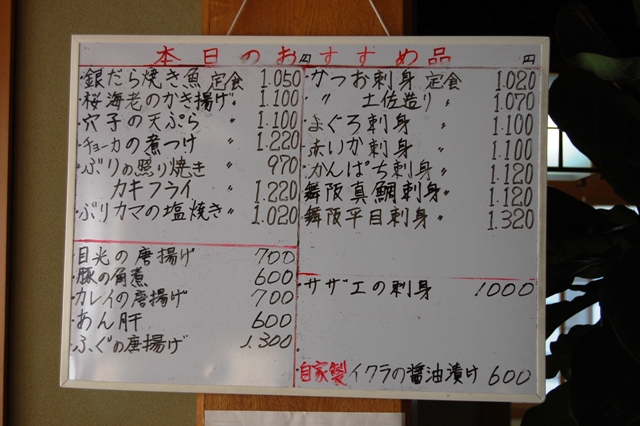 本日のおすすめ品
円
円
・銀だら焼き魚 定食 1.050
・桜海老のかき揚げ 〃 1.100
・穴子の天ぷら 〃 1.100
・チョーカの煮つけ 〃 1.220
・ぶりの照り焼き 〃 970
カキフライ 〃 1.220
・ぶりカマの塩焼き 〃 1.020
・目光の唐揚げ 700
・豚の角煮 600
・カレイの唐揚げ 700
・あん肝 600
・ふぐの唐揚げ 1.300
・かつお刺身 定食 1.020
・〃 土佐造り 〃 1.070
・まぐろ刺身 〃 1.100
・赤いか刺身 〃 1.100
・かんぱち刺身 〃 1.120
舞阪真鯛刺身 〃 1.120
・舞阪平目刺身 〃 1.320
・サザエの刺身 1000
・
・自家製イクラの醤油漬け 600